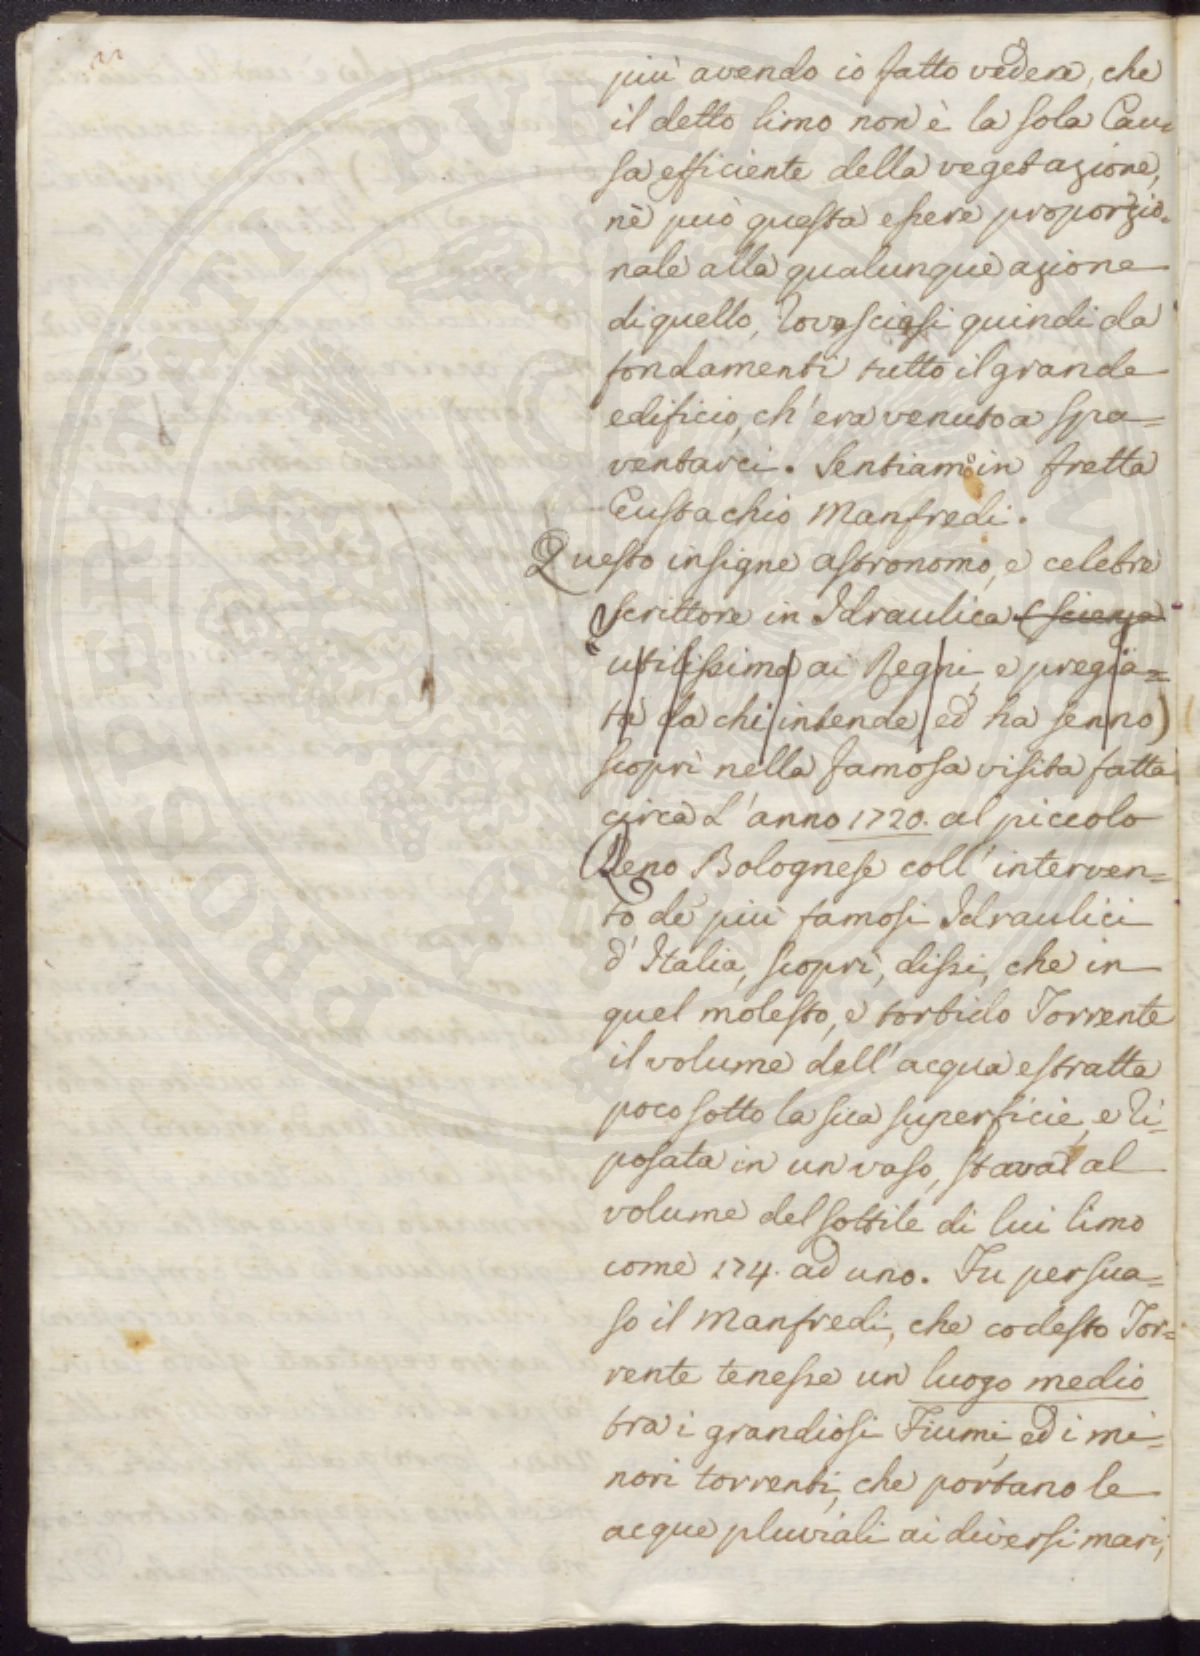 22
più avendo io fatto vedere, che
il detto limo non è la sola Cau-
sa efficiente della vegetazione,
nè può questa essere proporzio-
nale alla qualunque azione
di quello, rovesciasi quindi da
fondamenti tutto il grande
edificio, ch'era venuto a spa=
ventarci. Sentiamo in fretta
Eustachio Manfredi.
Questo insigne astronomo, e celebre
scrittore in Idraulica (scienza
utilissima ai Regni, e pregia=
ta da chi intende, ed ha senno)
scoprì nella famosa visita fatta
circa l'anno 1720. al piccolo
Reno Bolognese coll'interven=
to de' più famosi Idraulici
d'Italia, scoprì, dissi, che in
quel molesto, e torbido Torrente
il volume dell'acqua estratta
poco sotto la sua superficie, e ri-
posata in un vaso, stava al
volume del sottile di lui limo
come 174. ad uno. Fu persua=
so il Manfredi, che codesto Tor=
rente tenesse un luogo medio
tra i grandiosi Fiumi, ed i mi-
nori torrenti, che portano le
acque pluviali ai diversi mari,
PROSPERITATI PVBLICAE